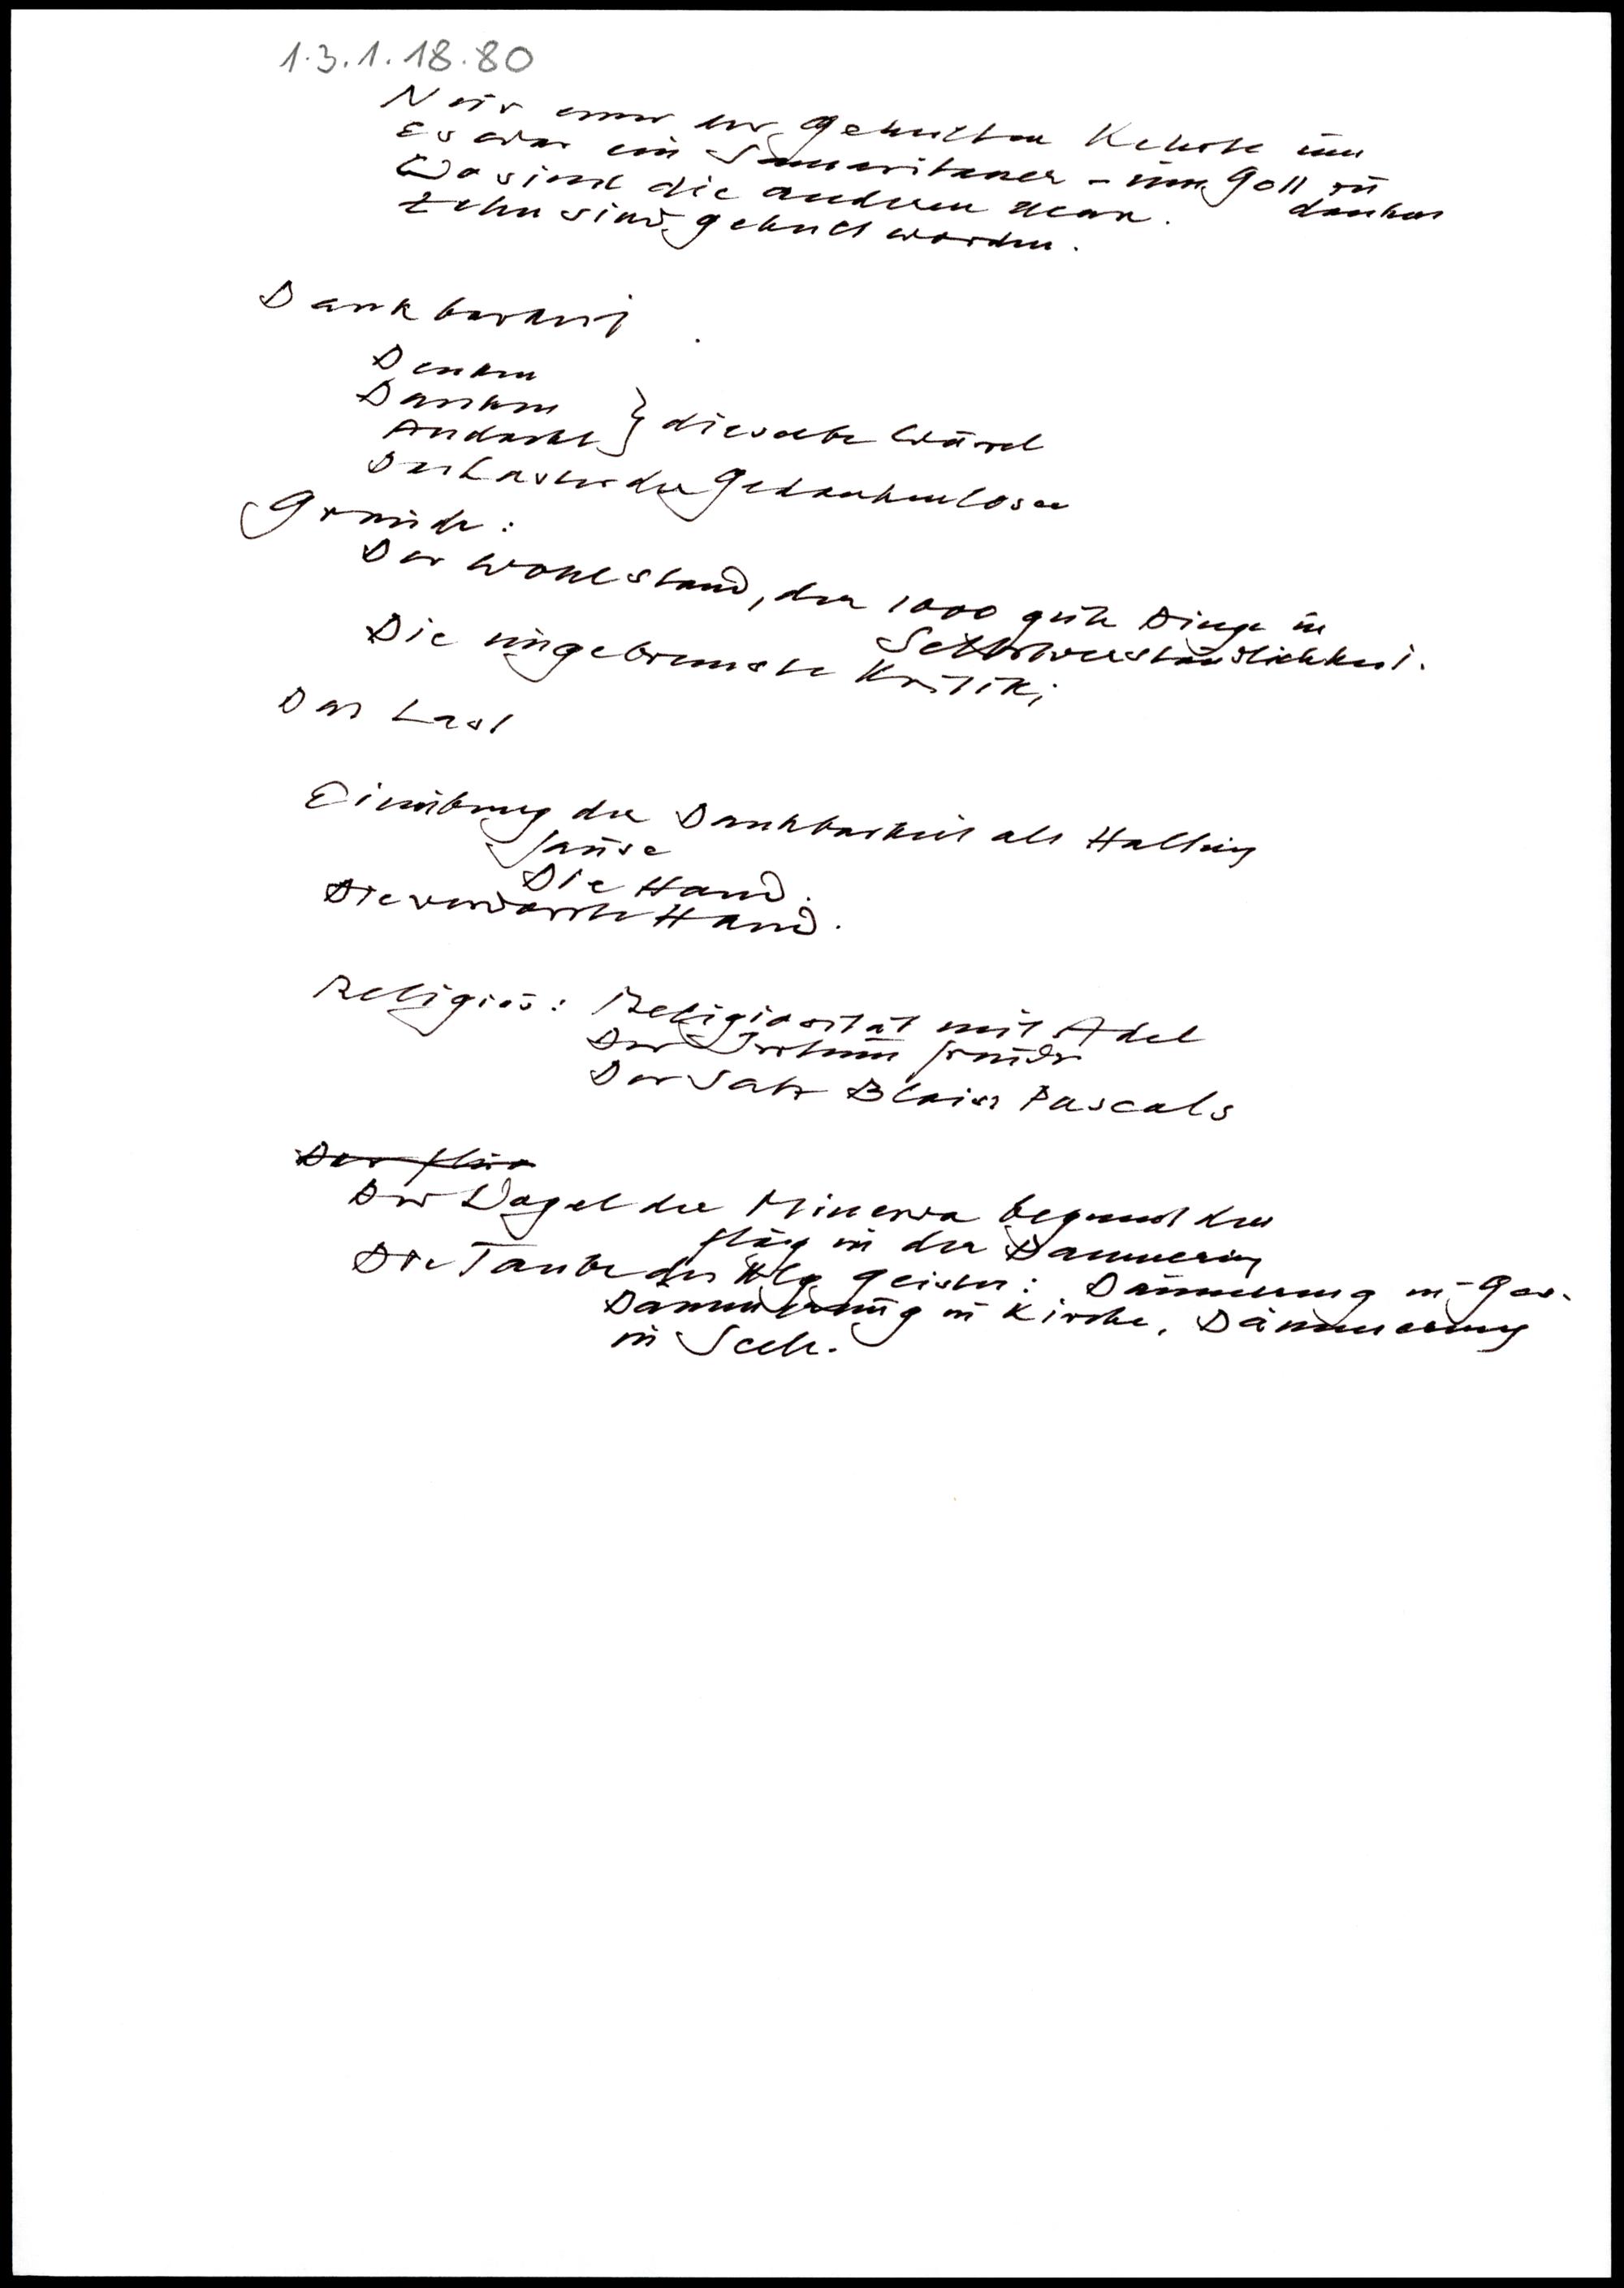 1.3.1.18.80
Nur einer der Geheilten kehrte um
Es war ein Samaritaner – um Gott zu danken
Wo sind die anderen neun.
Zehn sind geheilt worden.
Dankbarkeit.
Denken
Danken
Andacht } dieselbe Wurzel
Das Laster der Gedankenlosen
Gründe:
Der Wohlstand, der 1000 gute Dinge in
Selbstverständlichkeit.
Die ungebremste Kritik;
Das Last
Einübung der Dankbarkeit als Haltung
Die Hand.
Die verdorrte Hand.
Religiös: Religiosität mit Adel
Der Irrtum
Der Satz Blaise Pascals
Der Vogel der Minerva beginnt den
Flug in der Dämmerung
Die Taube des Hlg. Geistes: Dämmerung in Ges.
Dämmerung in Kirche, Dämmerung
in Seele.